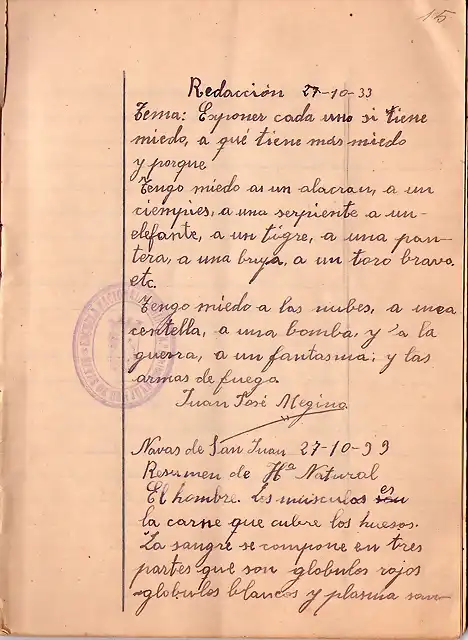 15
Redacción 27-10-33
Tema: Exponer cada uno si tiene
miedo, a qué tiene más miedo
y porque
Tengo miedo a un alacran, a un
ciempies, a una serpiente a un
elefante, a un tigre, a una pan-
tera, a una bruja, a un toro bravo.
etc.
Tengo miedo a las nubes, a una
centella, a una bomba, y a la
guerra, a un fantasma; y las
armas de fuego
Juan José Megina
Navas de San Juan 27-10-33
Resumen de Hª Natural
El hombre. Los músculos es
la carne que cubre los huesos.
La sangre se compone en tres
partes que son globulos rojos
globulos blancos y plasma